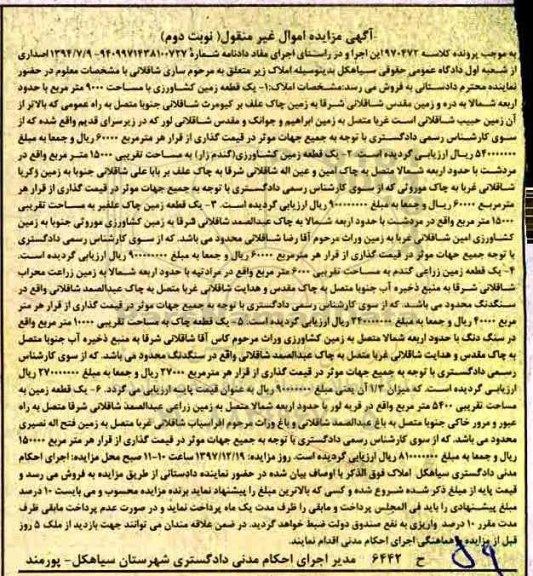 آگهی مزایده اموال غیر منقول( نوبت دوم)
به موجب پرونده کلاسه ۹۷۰۴۷۲ این اجرا و در راستای اجرای مفاد دادنامه شماره ۹۴۰۹۹۷۱۴۳۸۱۰۰۷۲۷-۱۳۹۴/۷/۹ اصداری
از شعبه اول دادگاه عمومی حقوقی سیاهکل بدینوسیله املاک زیر متعلق به مرحوم سازی شاقلانی با مشخصات معلوم در حضور
نماینده محترم دادستانی به فروش می رسد:مشخصات املاک:۱- یک قطعه زمین کشاورزی با مساحت ۹۰۰۰ متر مربع با حدود
اربعه شمالا به دره و زمین مقدس شاقلانی شرقا به زمین چاک علف بر کیومرث شاقلانی جنوبا متصل به راه عمومی که بالاتر از
آن زمین حبیب شاقلانی است غربا متصل به زمین ابراهیم و جوانک و مقدس شاقلانی لور که در زیرسرای قدیم واقع شده که از
سوی کارشناس رسمی دادگستری با توجه به جمیع جهات موثر در قیمت گذاری از قرار هر مترمربع ۶۰۰۰۰ ریال و جمعا به مبلغ
۵۴۰۰۰۰۰۰۰ ریال ارزیابی گردیده است. ۲- یک قطعه زمین کشاورزی(گندم زار) به مساحت تقریبی ۱۵۰۰۰ متر مربع واقع در
مردشت با حدود اربعه شمالا متصل به چاک امین و عین اله شاقلانی شرقا به چاک علف بر بابا علی شاقلانی جنوبا به زمین زکریا
شاقلانی غربا به چاک موروثی که از سوی کارشناس رسمی دادگستری با توجه به جمیع جهات موثر در قیمت گذاری از قرار هر
مترمربع ۶۰۰۰۰ ریال و جمعا به مبلغ ۹۰۰۰۰۰۰۰۰ ریال ارزیابی گردیده است. ۳- یک قطعه زمین چاک علفبر به مساحت تقریبی
۱۵۰۰۰ متر مربع واقع در مردشت با حدود اربعه شمالا به چاک عبدالصمد شاقلانی شرقا به زمین کشاورزی موروثی جنوبا به زمین
کشاورزی امین شاقلانی غربا به زمین وراث مرحوم آقا رضا شاقلانی محدود می باشد. که از سوی کارشناس رسمی دادگستری
با توجه جمیع جهات موثر در قیمت گذاری از قرار هر مترمربع ۶۰۰۰۰ ریال و جمعا به مبلغ ۹۰۰۰۰۰۰۰۰ ریال ارزیابی گردیده است.
۴- یک قطعه زمین زراعی گندم به مساحت تقریبی ۶۰۰۰ متر مربع واقع در مرادتپه با حدود اربعه شمالا به زمین زراعت محراب
شاقلانی شرقا به منبع ذخیره آب جنوبا متصل به چاک مقدس و هدایت شاقلانی غربا متصل به چاک عبدالصمد شاقلانی واقع در
سنگدنگ محدود می باشد. که از سوی کارشناس رسمی دادگستری با توجه به جمیع جهات موثر در قیمت گذاری از قرار هر متر
مربع ۴۰۰۰۰ ریال و جمعا به مبلغ ۲۴۰۰۰۰۰۰۰ ریال ارزیابی گردیده است. ۵- یک قطعه چاک به مساحت تقریبی ۱۰۰۰۰ متر مربع واقع
در سنگ دنگ با حدود اربعه شمالا متصل به زمین کشاورزی وراث مرحوم کاس آقا شاقلانی شرقا به منبع ذخیره آب جنوبا متصل
به چاک مقدس و هدایت شاقلانی غربا متصل به چاک عبدالصمد شاقلانی واقع در سنگدنگ محدود می باشد. که از سوی کارشناس
رسمی دادگستری با توجه به جمیع جهات موثر در قیمت گذاری از قرار هر مترمربع ۲۷۰۰۰ ریال و جمعا به مبلغ ۲۷۰۰۰۰۰۰۰ ریال
ارزیابی گردیده است. که میزان ۱/۳ آن یعنی مبلغ ۹۰۰۰۰۰۰۰ ریال به عنوان قیمت پایه ارزیابی می گردد. ۶- یک قطعه زمین به
مساحت تقریبی ۵۴۰۰ متر مربع واقع در قریه لور با حدود اربعه شمالا متصل به زمین زراعی عبدالصمد شاقلانی شرقا متصل به راه
عبور و مرور خاکی جنوبا متصل به باغ عبدالصمد شاقلانی و باغ وراث مرحوم افراسیاب شاقلانی غربا متصل به زمین فتح اله نصیری
محدود می باشد. که از سوی کارشناس رسمی دادگستری با توجه به جمیع جهات موثر در قیمت گذاری از قرار هر متر مربع ۱۵۰۰۰۰
ریال و جمعا به مبلغ ۸۱۰۰۰۰۰۰۰ ریال ارزیابی گردیده است. روز مزایده: ۱۳۹۷/۱۲/۱۹ ساعت ۱۰-۱۱ صبح محل مزایده: اجرای احکام
مدنی دادگستری سیاهکل املاک فوق الذکر با اوصاف بیان شده در حضور نماینده دادستانی از طریق مزایده به فروش می رسد و
قیمت پایه از مبلغ ذکر شده شروع شده و کسی که بالاترین مبلغ را پیشنهاد نماید برنده مزایده محسوب و می بایست ۱۰ درصد
مبلغ پیشنهادی را باید فی المجلس پرداخت و مابقی را ظرف مدت یک ماه پرداخت نماید و در صورت عدم پرداخت مابقی ظرف
مدت مقرر ۱۰ درصد واریزی به نفع صندوق دولت ضبط خواهد گردید. در ضمن علاقه مندان می توانند جهت بازدید از ملک ۵ روز
قبل از مزایده با هماهنگی اجرای احکام مدنی اقدام نمایند.
ح ۶۴۴۲ مدیر اجرای احکام مدنی دادگستری شهرستان سیاهکل- پورمند